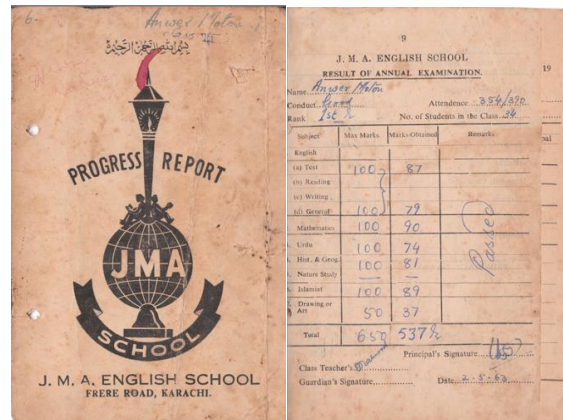 6.
Anwer Moton
Class III
بسم الله الرحمن الرحيم
PROGRESS REPORT
JMA
SCHOOL
J. M. A. ENGLISH SCHOOL
FRERE ROAD, KARACHI.
9
J. M. A. ENGLISH SCHOOL
RESULT OF ANNUAL EXAMINATION.
Name Anwer Moton
Conduct Good Attendence 354/390
Rank 1st No. of Students in the Class 34
Subject Max Marks Marks Obtained Remarks
English
(a) Text 100 87
(b) Reading
(c) Writing
(d) General 100 79
Mathematics 100 90
Urdu 100 74
Hist. & Geog. 100 81
Nature Study — —
Islamiat 100 89
Drawing or Art 50 37
Passed
Total 650 537½
Principal's Signature
Class Teacher's
Guardian's Signature Date 2-5-63
19